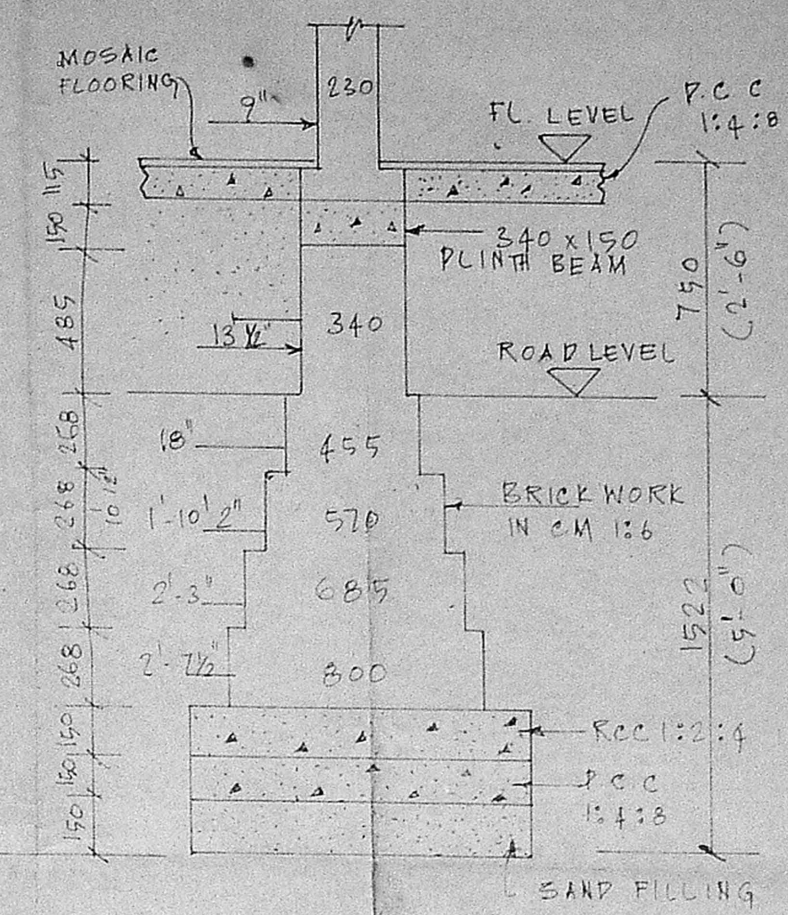 MOSAIC
FLOORING
9"
230
FL. LEVEL
P.C C
1:4:8
115
150
340 x 150
PLINTH BEAM
750
(2'-6")
485
13 ½"
340
ROAD LEVEL
268
18"
455
268
10 ½"
1'-10' 2"
570
BRICK WORK
IN CM 1:6
268
2'-3"
685
1522
(5'-0")
268
2'-7½"
800
150
RCC 1:2:4
150
P.C C
1:4:8
150
SAND FILLING